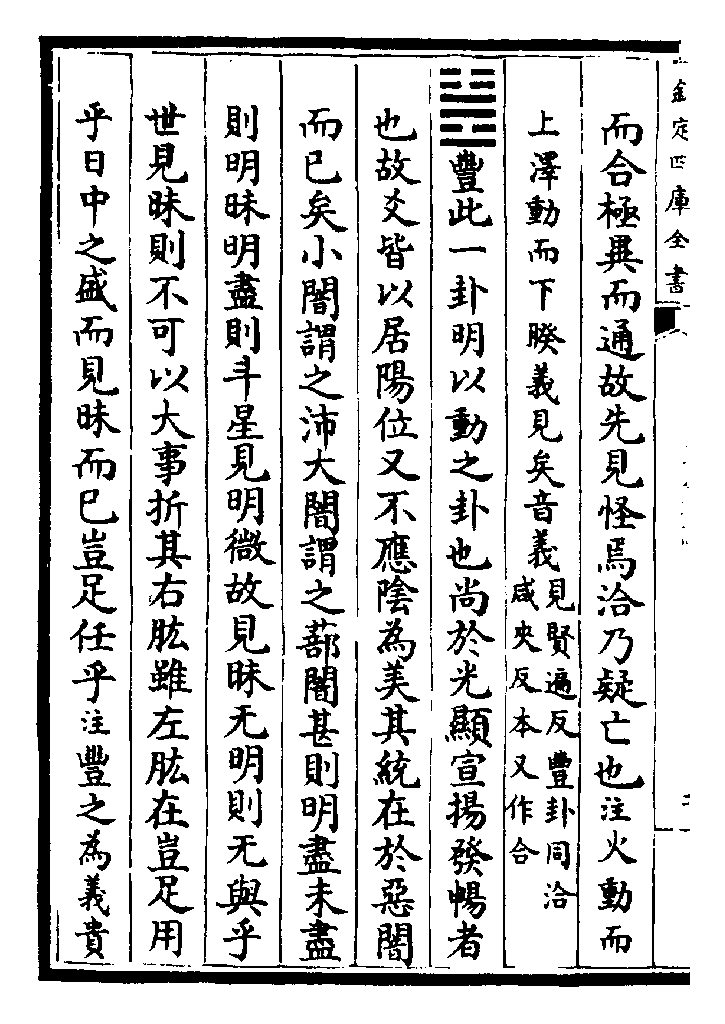 欽定四庫全書
而合極異而通故先見怪焉洽乃疑亡也注火動而
上澤動而下睽義見矣音義見賢遍反豐卦同洽
咸夾反本又作合
䷶豐此一卦明以動之卦也尚於光顯宣揚發暢者
也故爻皆以居陽位又不應陰為美其統在於惡闇
而已矣小闇謂之沛大闇謂之蔀闇甚則明盡未盡
則明昧明盡則斗星見明微故見昧无明則无與乎
世見昧則不可以大事折其右肱雖左肱在豈足用
乎日中之盛而見昧而已豈足任乎注豐之為義貴